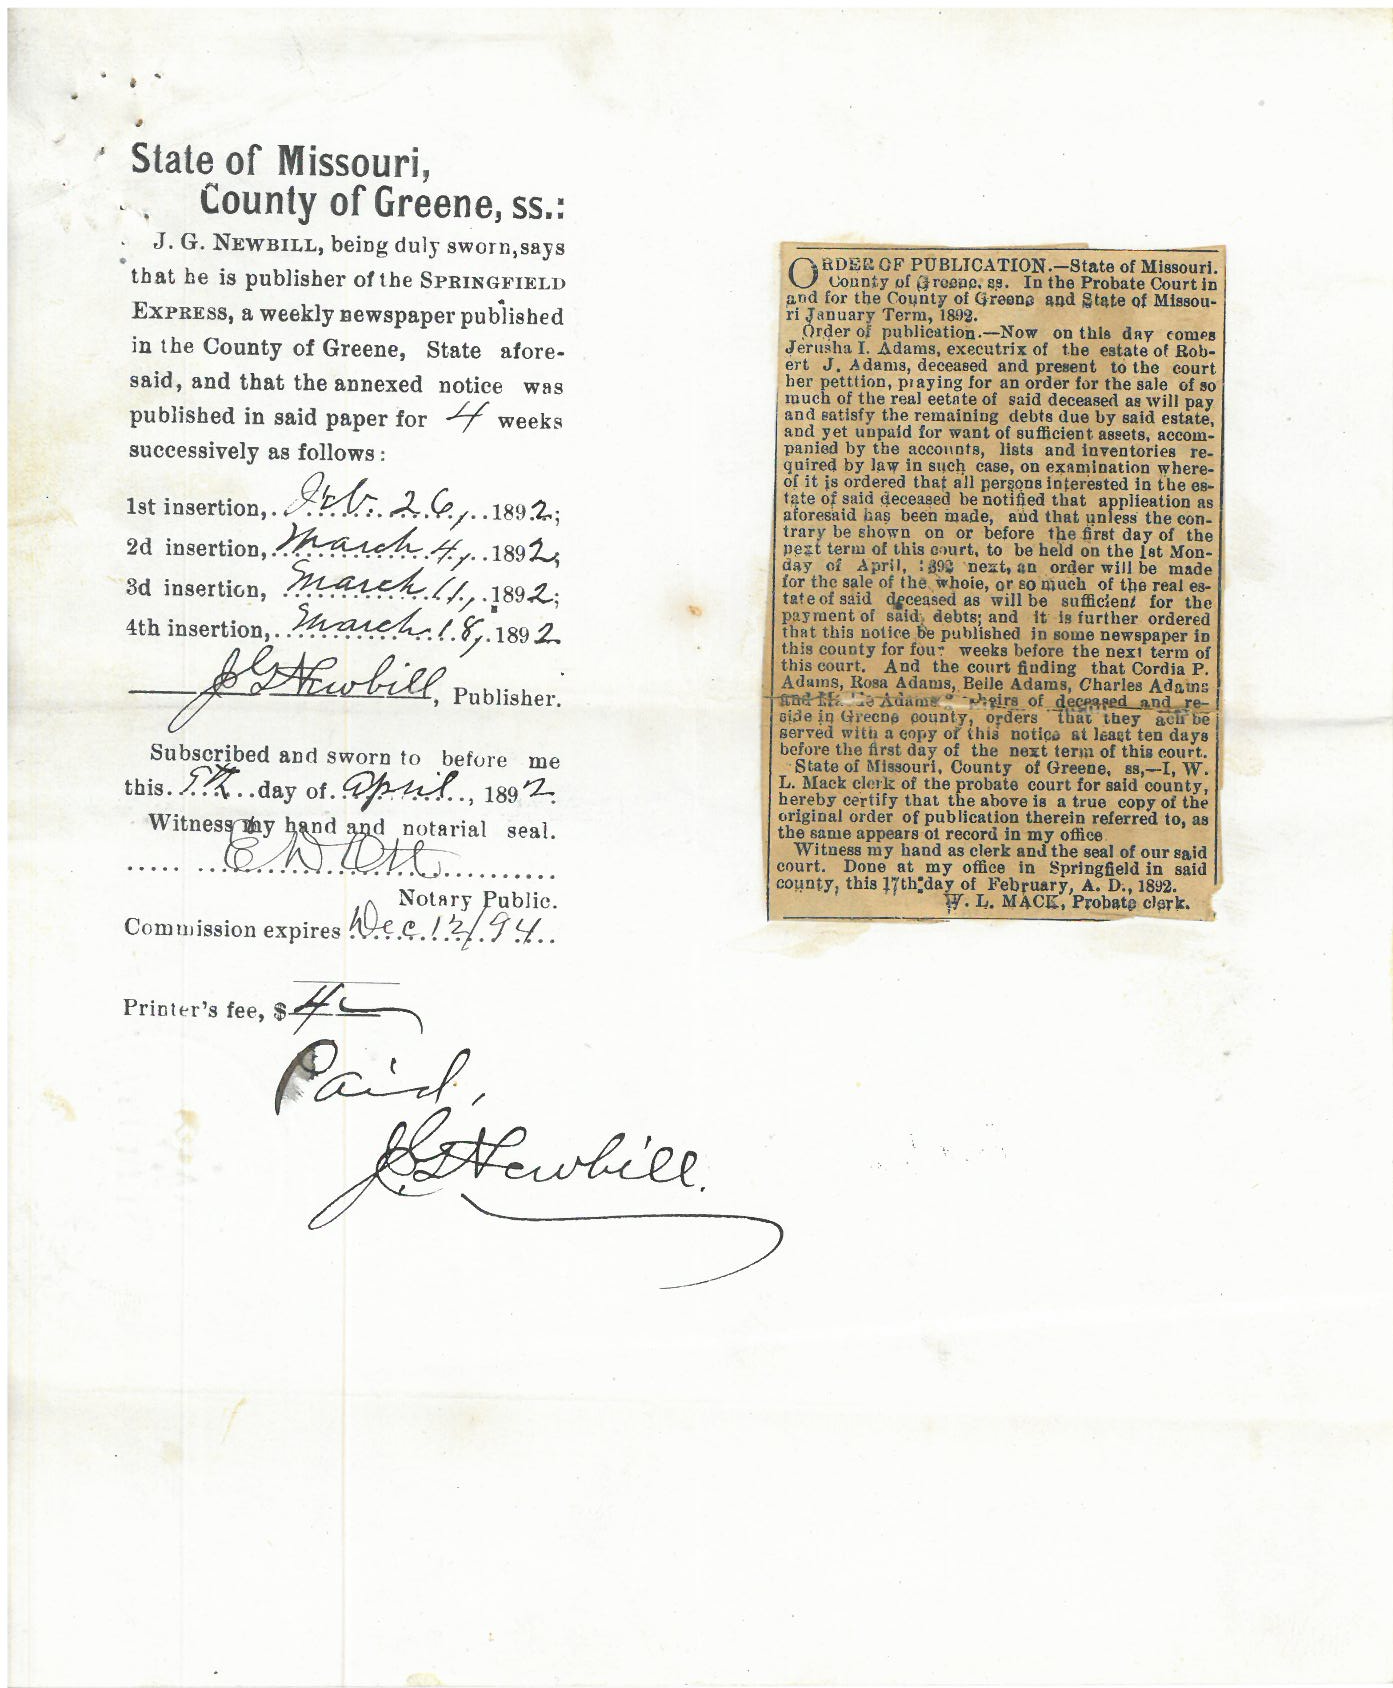 State of Missouri,
County of Greene, ss.:
J. G. NEWBILL, being duly sworn, says
that he is publisher of the SPRINGFIELD
EXPRESS, a weekly newspaper published
in the County of Greene, State afore-
said, and that the annexed notice was
published in said paper for 4 weeks
successively as follows:
1st insertion, Feb. 26, 1892;
2d insertion, March 4, 1892;
3d insertion, March 11, 1892;
4th insertion, March 18, 1892.
J G Newbill, Publisher.
Subscribed and sworn to before me
this 5th day of April, 1892.
Witness my hand and notarial seal.
E D Ott
Notary Public.
Commission expires Dec 12/94
Printer's fee, $4
Paid,
J. G Newbill.
ORDER OF PUBLICATION.—State of Missouri.
County of Greene, ss. In the Probate Court in
and for the County of Greene and State of Missou-
ri January Term, 1892.
Order of publication.—Now on this day comes
Jerusha I. Adams, executrix of the estate of Rob-
ert J. Adams, deceased and present to the court
her petttion, praying for an order for the sale of so
much of the real eetate of said deceased as will pay
and satisfy the remaining debts due by said estate,
and yet unpaid for want of sufficient assets, accom-
panied by the accounts, lists and inventories re-
quired by law in such case, on examination where-
of it is ordered that all persons interested in the es-
tate of said deceased be notified that applieation as
aforesaid has been made, and that unless the con-
trary be shown on or before the first day of the
next term of this court, to be held on the 1st Mon-
day of April, 1892 next, an order will be made
for the sale of the whole, or so much of the real es-
tate of said deceased as will be sufficient for the
payment of said debts; and it is further ordered
that this notice be published in some newspaper in
this county for four weeks before the next term of
this court. And the court finding that Cordia P.
Adams, Rosa Adams, Belle Adams, Charles Adams
and Adams heirs of deceased and re-
side in Greene county, orders that they ach be
served with a copy of this notice at least ten days
before the first day of the next term of this court.
State of Missouri, County of Greene, ss,—I, W.
L. Mack clerk of the probate court for said county,
hereby certify that the above is a true copy of the
original order of publication therein referred to, as
the same appears of record in my office
Witness my hand as clerk and the seal of our said
court. Done at my office in Springfield in said
county, this 17th day of February, A. D., 1892.
W. L. MACK, Probate clerk.